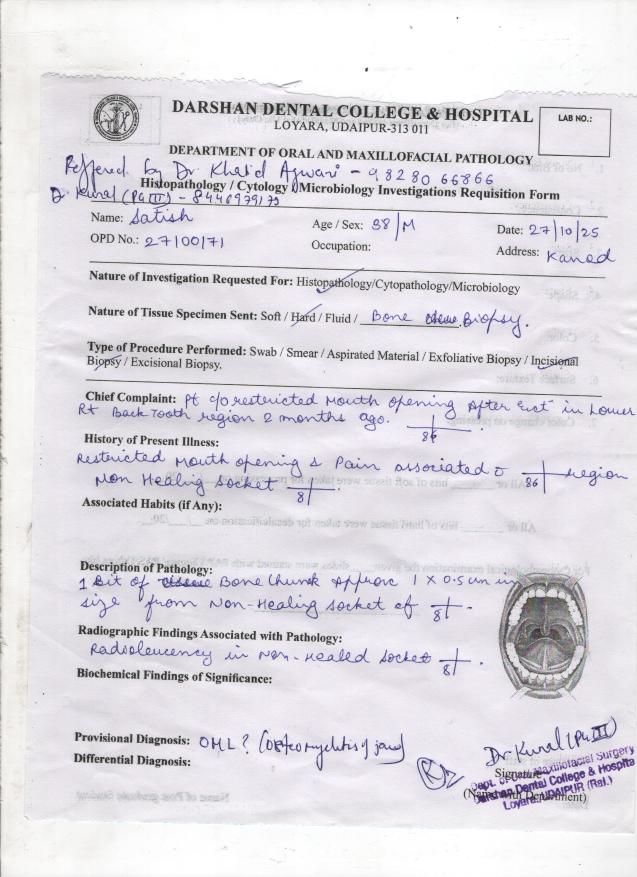 DARSHAN DENTAL COLLEGE & HOSPITAL
LOYARA, UDAIPUR-313 011
LAB NO.:
DEPARTMENT OF ORAL AND MAXILLOFACIAL PATHOLOGY
Reffered by Dr Khalid Agwani - 98280 66866
Histopathology / Cytology / Microbiology Investigations Requisition Form
Dr Kunal (PG III) - 8446979179
Name: Satish Age / Sex: 38/M Date: 27/10/25
OPD No.: 27100171 Occupation: Address: Kanod
Nature of Investigation Requested For: Histopathology/Cytopathology/Microbiology
Nature of Tissue Specimen Sent: Soft / Hard / Fluid / Bone Biopsy.
Type of Procedure Performed: Swab / Smear / Aspirated Material / Exfoliative Biopsy / Incisional
Biopsy / Excisional Biopsy.
Chief Complaint: Pt c/o restricted Mouth opening After Ext in Lower
Rt Back Tooth region 2 months ago. 86
History of Present Illness:
Restricted Mouth opening & Pain associated c 86 region
Non Healing Socket 8.
Associated Habits (if Any):
Description of Pathology:
1 Bit of Bone Chunk Approx 1 X 0.5 cm in
size from Non-Healing socket of 8.
Radiographic Findings Associated with Pathology:
Radiolucency in Non-Healed Socket 8.
Biochemical Findings of Significance:
Provisional Diagnosis: OML? (Osteomyelitis of jaw)
Differential Diagnosis:
Dr Kunal (PG III)
Signature
(Name with Department)
Dept. of Oral & Maxillofacial Surgery
Darshan Dental College & Hospital
Loyara, UDAIPUR (Raj.)